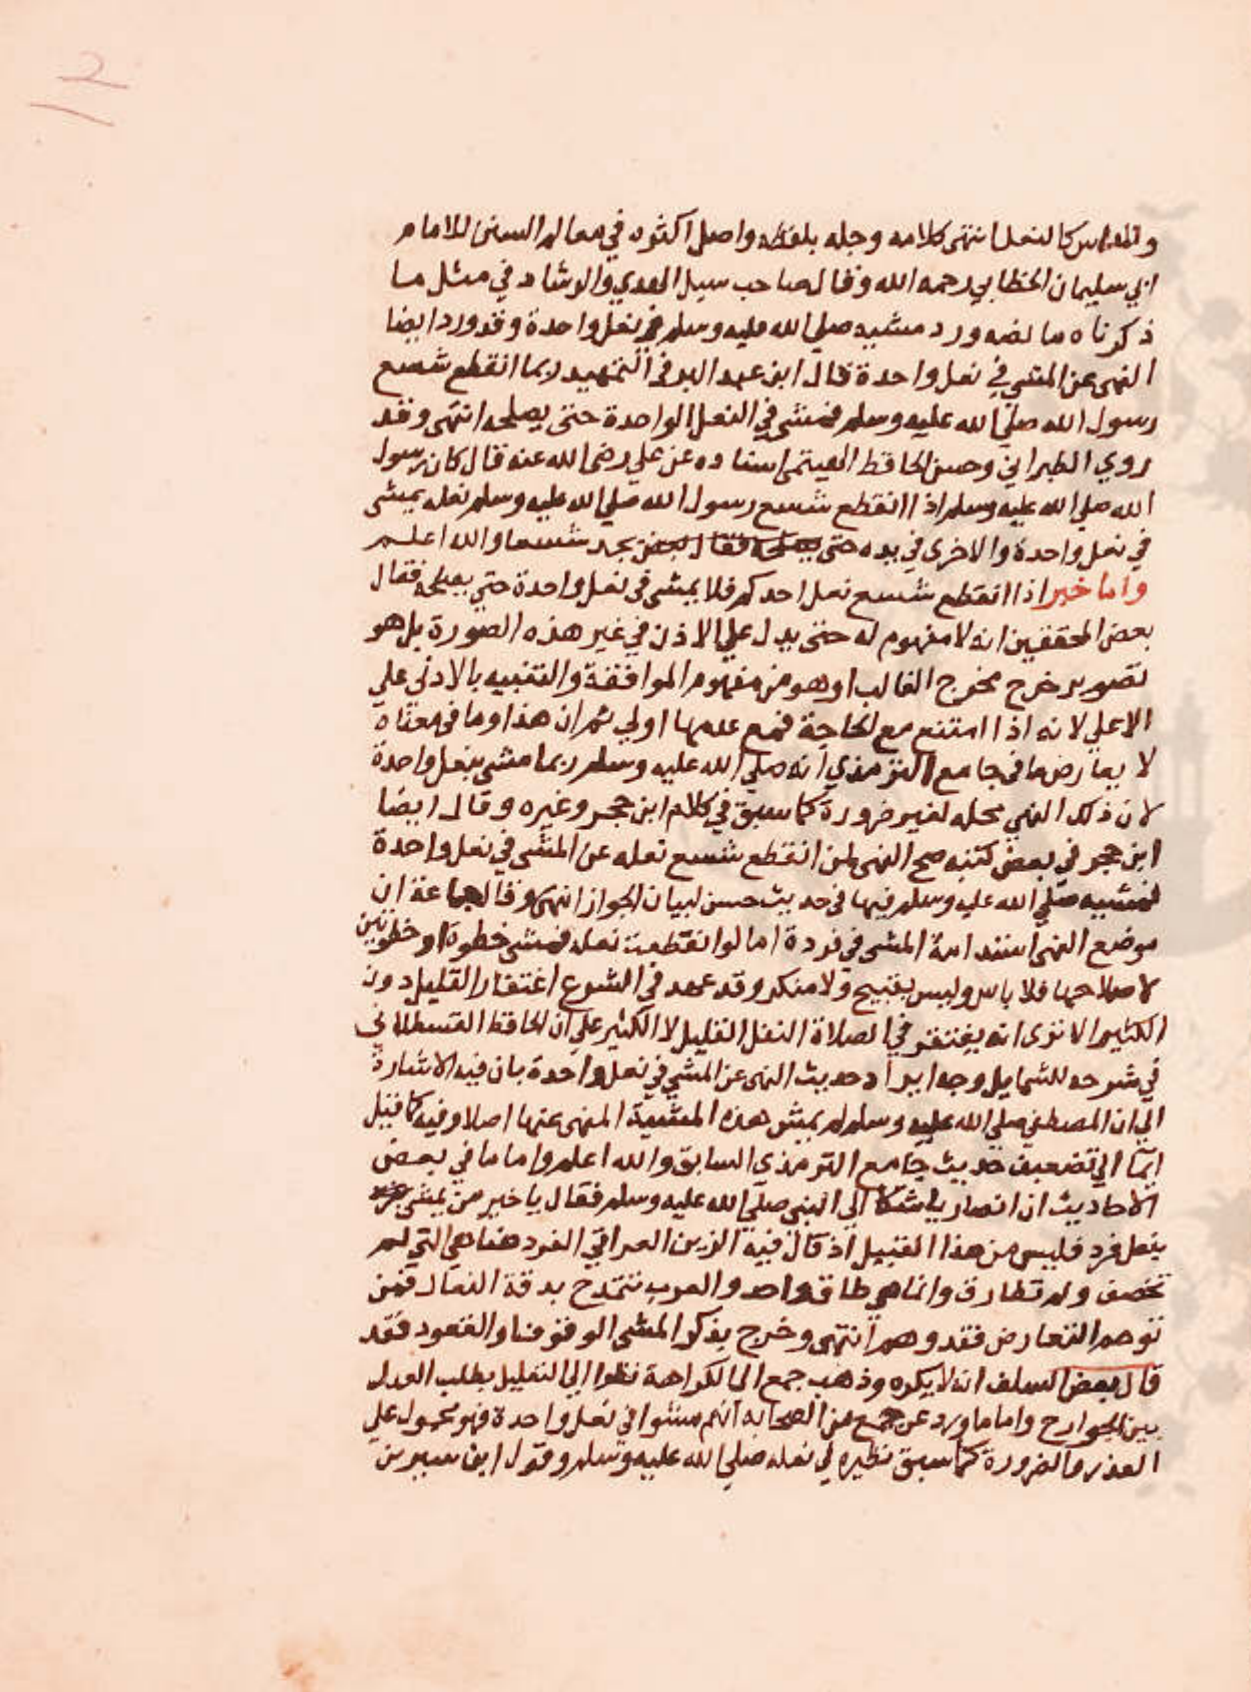 والمداس كالنعل انتهى كلامه وجله بلفظه واصل اكثره في معالم السنن للامام
ابي سليمان الخطابي رحمه الله وقال صاحب سبل الهدي والرشاد في مثل ما
ذكرناه ما نصه ورد مشيه صلي الله عليه وسلم في نعل واحدة وقد ورد ايضا
النهى عن المشي في نعل واحدة قال ابن عبد البر في التمهيد ربما انقطع شسع
رسول الله صلي الله عليه وسلم فمشي في النعل الواحدة حتى يصلحه انتهى وقد
روي الطبراني وحسن الحافظ الهيتمى اسناده عن علي رضى الله عنه قال كان رسول
الله صلي الله عليه وسلم اذا انقطع شسع رسول الله صلي الله عليه وسلم نعله يمشى
في نعل واحدة والاخرى في يده حتى يجد شسعا والله اعلم
واما خبر اذا انقطع شسع نعل احدكم فلا يمشى فى نعل واحدة حتي يصلحه فقال
بعض المحققين انه لا مفهوم له حتى يدل علي الاذن في غير هذه الصورة بل هو
تصوير خرج مخرج الغالب او هو من مفهوم الموافقة والتنبيه بالادنى علي
الاعلي لانه اذا امتنع مع الحاجة فمع عدمها اولي ثم ان هذا وما في معناه
لا يعارض ما فى جامع الترمذي انه صلي الله عليه وسلم ربما مشى بنعل واحدة
لان ذلك النهي محله لغير ضرورة كما سبق في كلام ابن حجر وغيره وقال ايضا
ابن حجر في بعض كتبه صح النهى لمن انقطع شسع نعله عن المشى في نعل واحدة
فمشيه صلي الله عليه وسلم فيها فى حديث حسن لبيان الجواز انتهى وقال جماعة ان
موضع النهى استدامة المشى في فردة اما لو انقطعت نعله فمشى خطوة او خطوتين
لاصلاحها فلا باس وليس بقبيح ولا منكر وقد عهد في الشرع اغتفار القليل دون
الكثير الا ترى انه يغتفر في الصلاة الفعل القليل لا الكثير علي ان الحافظ القسطلانى
في شرحه للشمايل وجه ايراد حديث النهى عن المشي في نعل واحدة بان فيه الاشارة
الي ان المصطفي صلي الله عليه وسلم لم يمش هذه المشية المنهى عنها اصلا وفيه كما قيل
ايما الي تضعيف حديث جامع الترمذى السابق والله اعلم واما ما في بعض
الاحاديث ان انصاريا شكا الي النبي صلي الله عليه وسلم فقال يا خير من يمشى
بنعل فرد فليس من هذا القبيل اذ قال فيه الزين العراقي الفرد هنا هي التي لم
تخصف ولم تطارق وانما هي طاق واحد والعرب تتمدح بدقة النعال فمن
توهم التعارض فقد وهم انتهى وخرج بذكر المشى الوقوف والقعود فقد
قال بعض السلف انه لا يكره وذهب جمع الي الكراهة نظرا الي التعليل بطلب العدل
بين الجوارح واما ما ورد عن جمع من الصحابه انهم مشوا في نعل واحدة فهو محمول علي
العذر والضرورة كما سبق نظيره في نعله صلي الله عليه وسلم وقول ابن سيرين